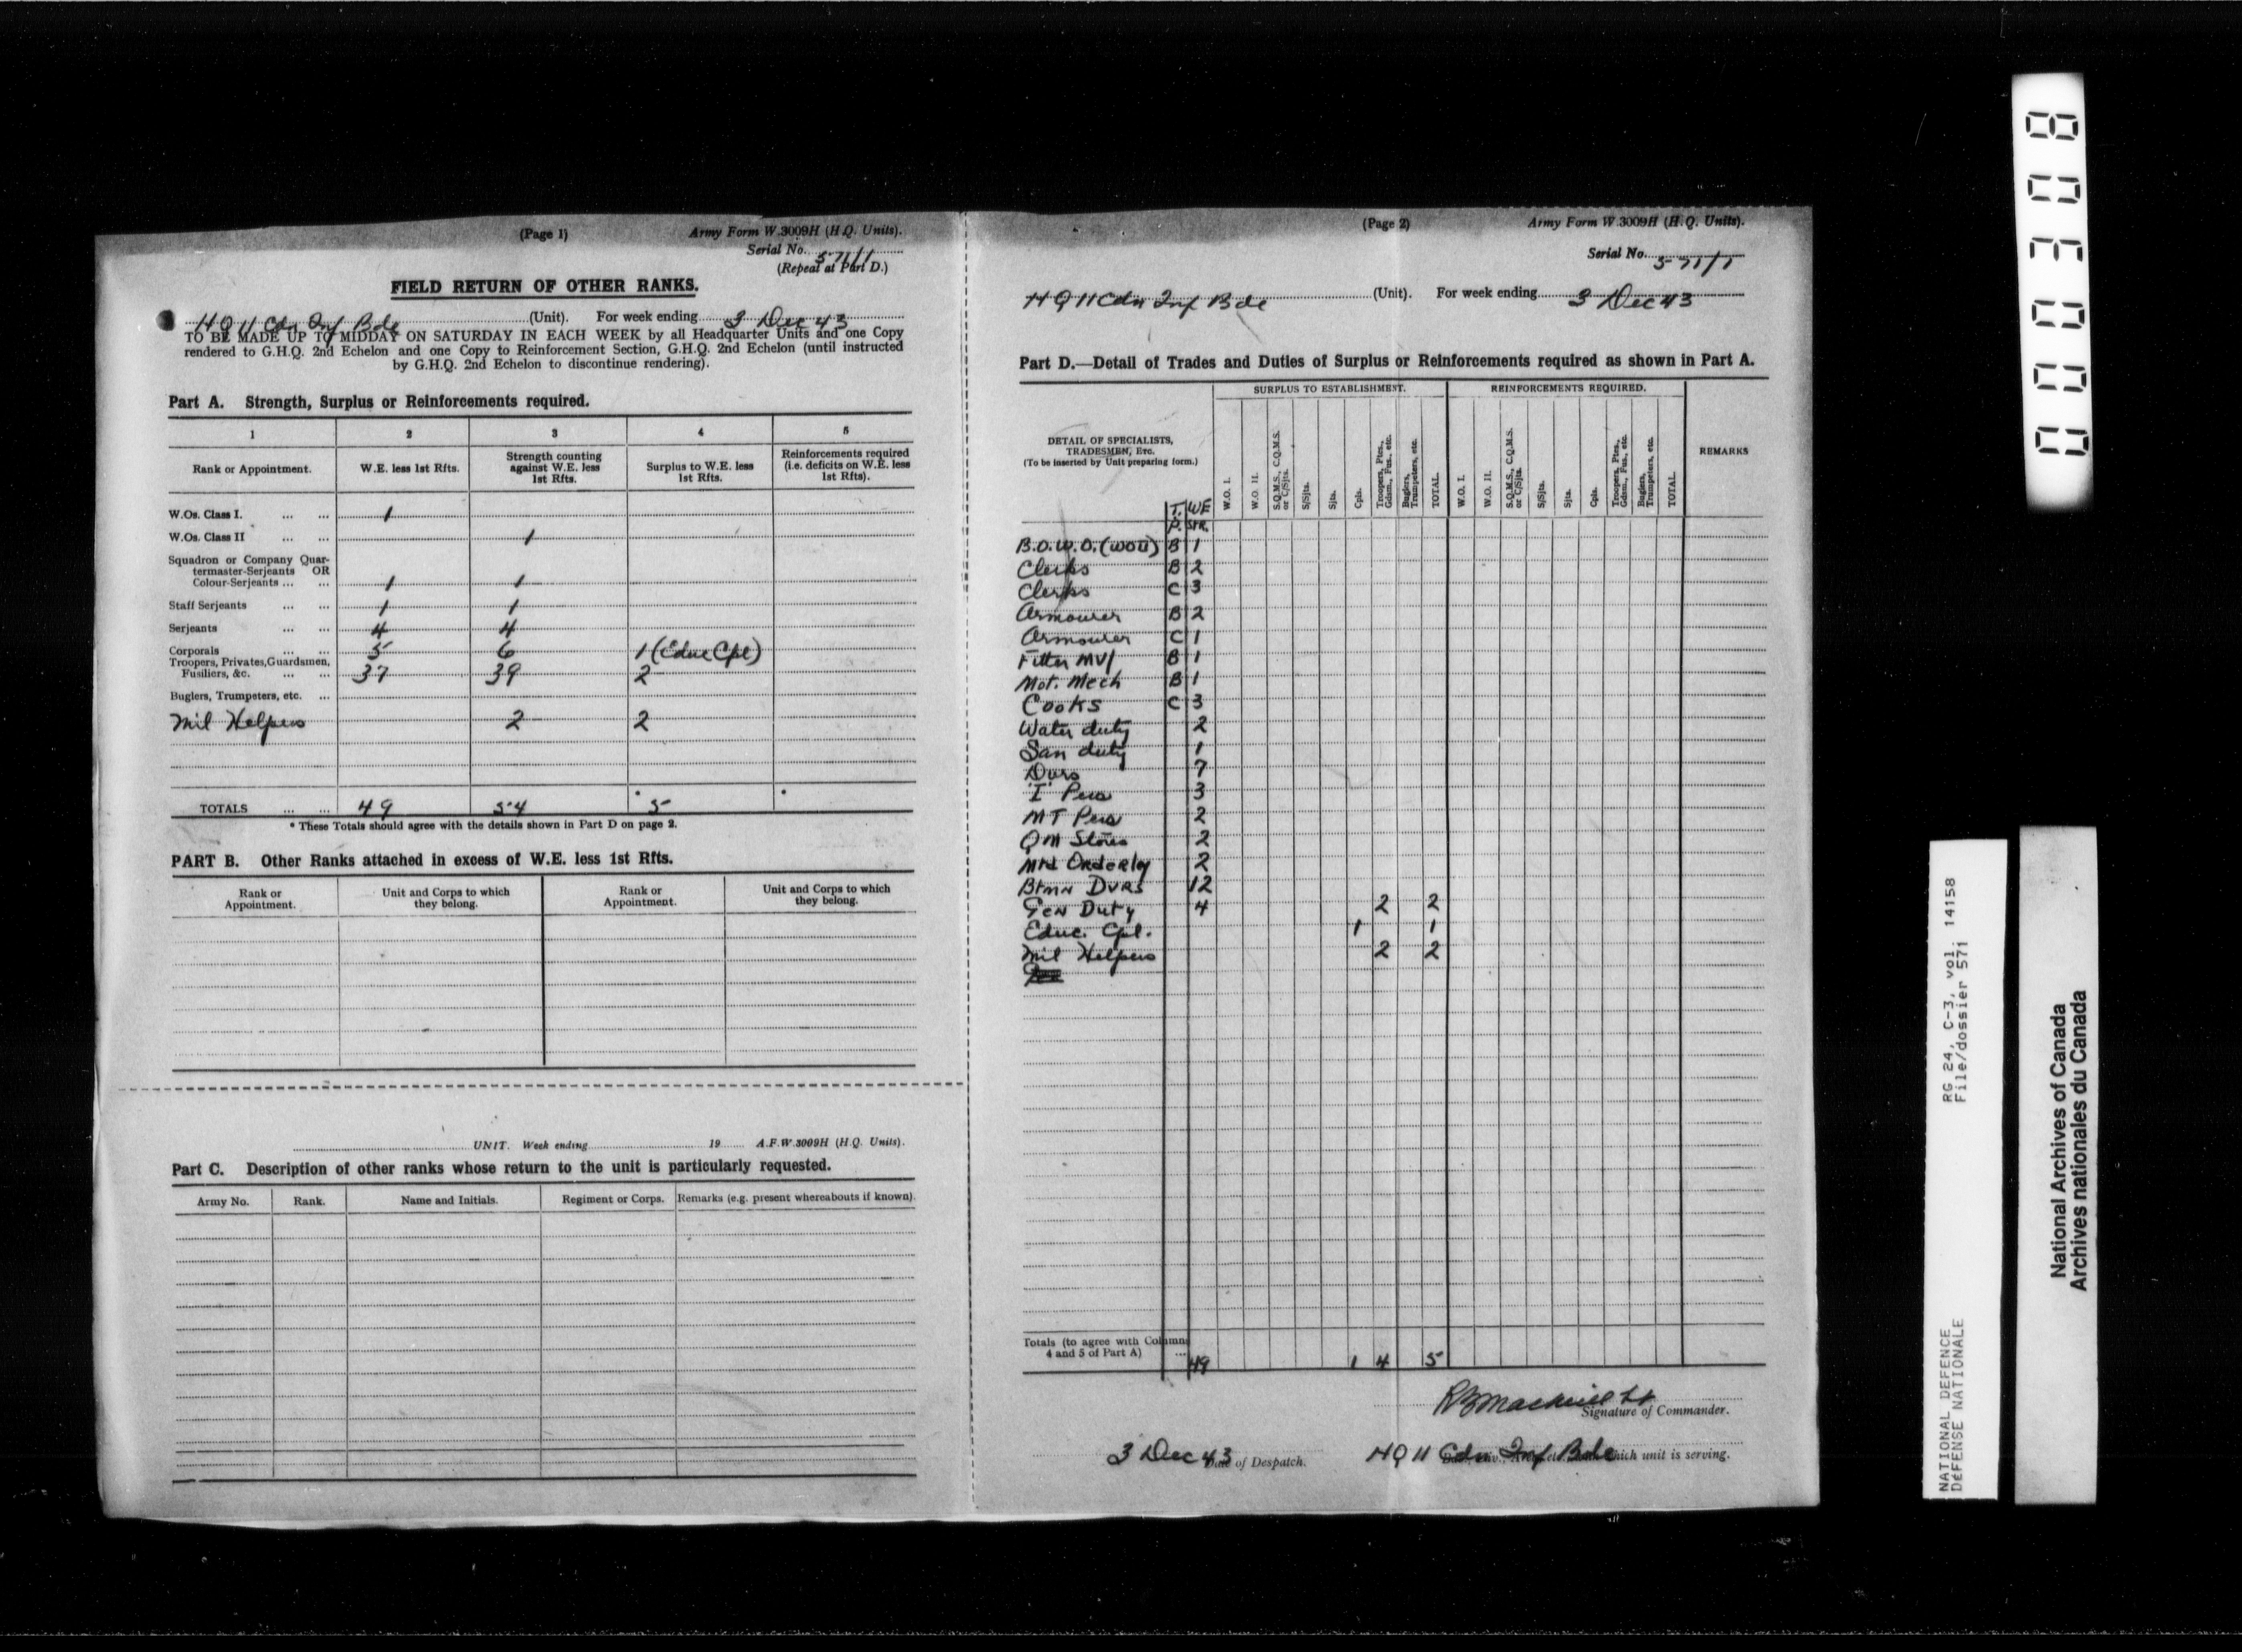 (Page 1)
Army Form W.3009H (H.Q. Units).
Serial No. 571/1
(Repeat at Part D.)
FIELD RETURN OF OTHER RANKS.
HQ 11 Cdn Inf Bde (Unit). For week ending 3 Dec 43
TO BE MADE UP TO MIDDAY ON SATURDAY IN EACH WEEK by all Headquarter Units and one Copy
rendered to G.H.Q. 2nd Echelon and one Copy to Reinforcement Section, G.H.Q. 2nd Echelon (until instructed
by G.H.Q. 2nd Echelon to discontinue rendering).
Part A. Strength, Surplus or Reinforcements required.
1 2 3 4 5
Rank or Appointment. W.E. less 1st Rfts. Strength counting against W.E. less 1st Rfts. Surplus to W.E. less 1st Rfts. Reinforcements required (i.e. deficits on W.E. less 1st Rfts).
W.Os. Class I. ... ... 1
W.Os. Class II ... ... 1
Squadron or Company Quar-
termaster-Serjeants OR
Colour-Serjeants ... ... 1 1
Staff Serjeants ... ... 1 1
Serjeants ... ... 4 4
Corporals ... ... 5 6 1 (Educ Cpl)
Troopers, Privates, Guardsmen,
Fusiliers, &c. ... ... 37 39 2
Buglers, Trumpeters, etc. ...
Mil Helpers 2 2
TOTALS ... ... 49 54 * 5 *
* These Totals should agree with the details shown in Part D on page 2.
PART B. Other Ranks attached in excess of W.E. less 1st Rfts.
Rank or Appointment. Unit and Corps to which they belong. Rank or Appointment. Unit and Corps to which they belong.
UNIT. Week ending 19 A.F.W.3009H (H.Q. Units).
Part C. Description of other ranks whose return to the unit is particularly requested.
Army No. Rank. Name and Initials. Regiment or Corps. Remarks (e.g. present whereabouts if known).
(Page 2)
Army Form W.3009H (H.Q. Units).
Serial No. 571/1
HQ 11 Cdn Inf Bde (Unit). For week ending 3 Dec 43
Part D.—Detail of Trades and Duties of Surplus or Reinforcements required as shown in Part A.
SURPLUS TO ESTABLISHMENT. REINFORCEMENTS REQUIRED.
DETAIL OF SPECIALISTS,
TRADESMEN, Etc.
(To be inserted by Unit preparing form.)
W.O. I. W.O. II. S.Q.M.S., C.Q.M.S. or C/Sjts. S/Sjts. Sjts. Cpls. Troopers, Ptes., Gdsm., Fus., etc. Buglers, Trumpeters, etc. TOTAL. W.O. I. W.O. II. S.Q.M.S., C.Q.M.S. or C/Sjts. S/Sjts. Sjts. Cpls. Troopers, Ptes., Gdsm., Fus., etc. Buglers, Trumpeters, etc. TOTAL. REMARKS
T. WE
P. STR.
B.O.W.O. (WOII) B 1
Clerks B 2
Clerks C 3
Armourer B 2
Armourer C 1
Fitter MV/ B 1
Mot. Mech B 1
Cooks C 3
Water duty 2
San duty 1
Dvrs 7
"I" Pers 3
MT Pers 2
QM Stores 2
Orderly 2
Btmn Dvrs 12
Gen Duty 4 2 2
Educ. Cpl. 1 1
Mil Helpers 2 2
Totals (to agree with Columns
4 and 5 of Part A) ... 49 1 4 5
Signature of Commander.
3 Dec 43 Date of Despatch.
HQ 11 Cdn Inf Bde which unit is serving.
000308
RG 24, C-3, vol. 14158
File/dossier 571
NATIONAL DEFENCE
DÉFENSE NATIONALE
National Archives of Canada
Archives nationales du Canada